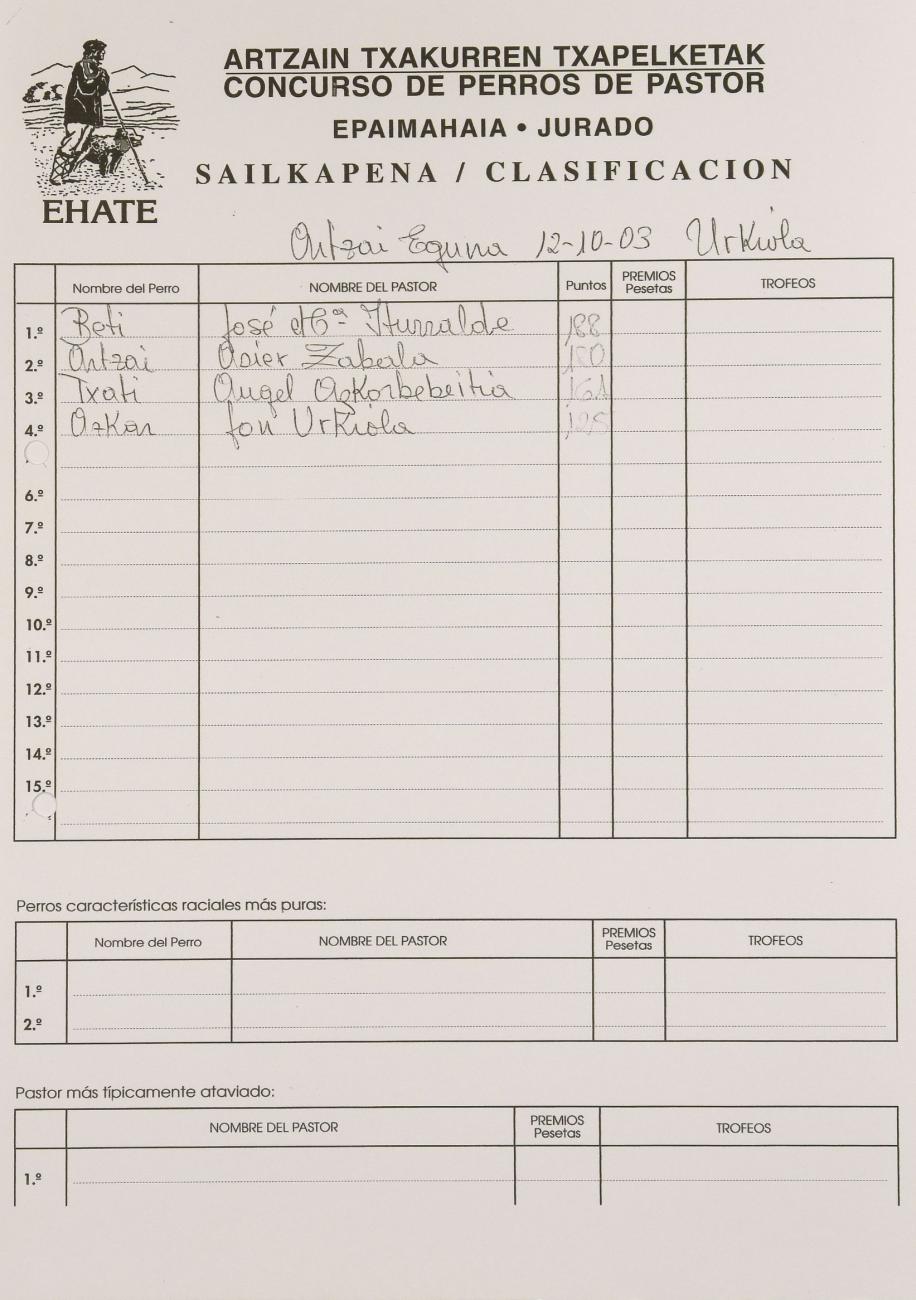 ARTZAIN TXAKURREN TXAPELKETAK
CONCURSO DE PERROS DE PASTOR
EPAIMAHAIA • JURADO
SAILKAPENA / CLASIFICACION
EHATE
Artzai Eguna 12-10-03 Urkiola
Nombre del Perro NOMBRE DEL PASTOR Puntos PREMIOS Pesetas TROFEOS
1.º Beti José Mª Iturralde 188
2.º Artzai Asier Zabala 180
3.º Txati Angel Azkorbebeitia 161
4.º Azkar Jon Urkiola 125
6.º
7.º
8.º
9.º
10.º
11.º
12.º
13.º
14.º
15.º
Perros características raciales más puras:
Nombre del Perro NOMBRE DEL PASTOR PREMIOS Pesetas TROFEOS
1.º
2.º
Pastor más típicamente ataviado:
NOMBRE DEL PASTOR PREMIOS Pesetas TROFEOS
1.º